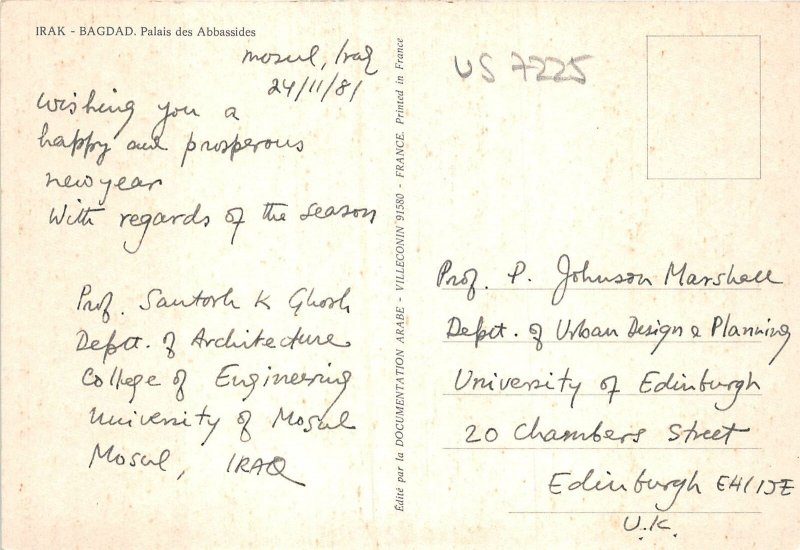 IRAK - BAGDAD. Palais des Abbassides
Mosul, Iraq
24/11/81
Wishing you a
happy and prosperous
new year
With regards of the season
Prof. Santosh K Ghosh
Deptt. of Architecture
College of Engineering
University of Mosul
Mosul, IRAQ
Édité par la DOCUMENTATION ARABE - VILLECONIN 91580 - FRANCE. Printed in France
US 7225
Prof. P. Johnson Marshall
Deptt. of Urban Design & Planning
University of Edinburgh
20 Chambers Street
Edinburgh EH1 1JZ
U.K.